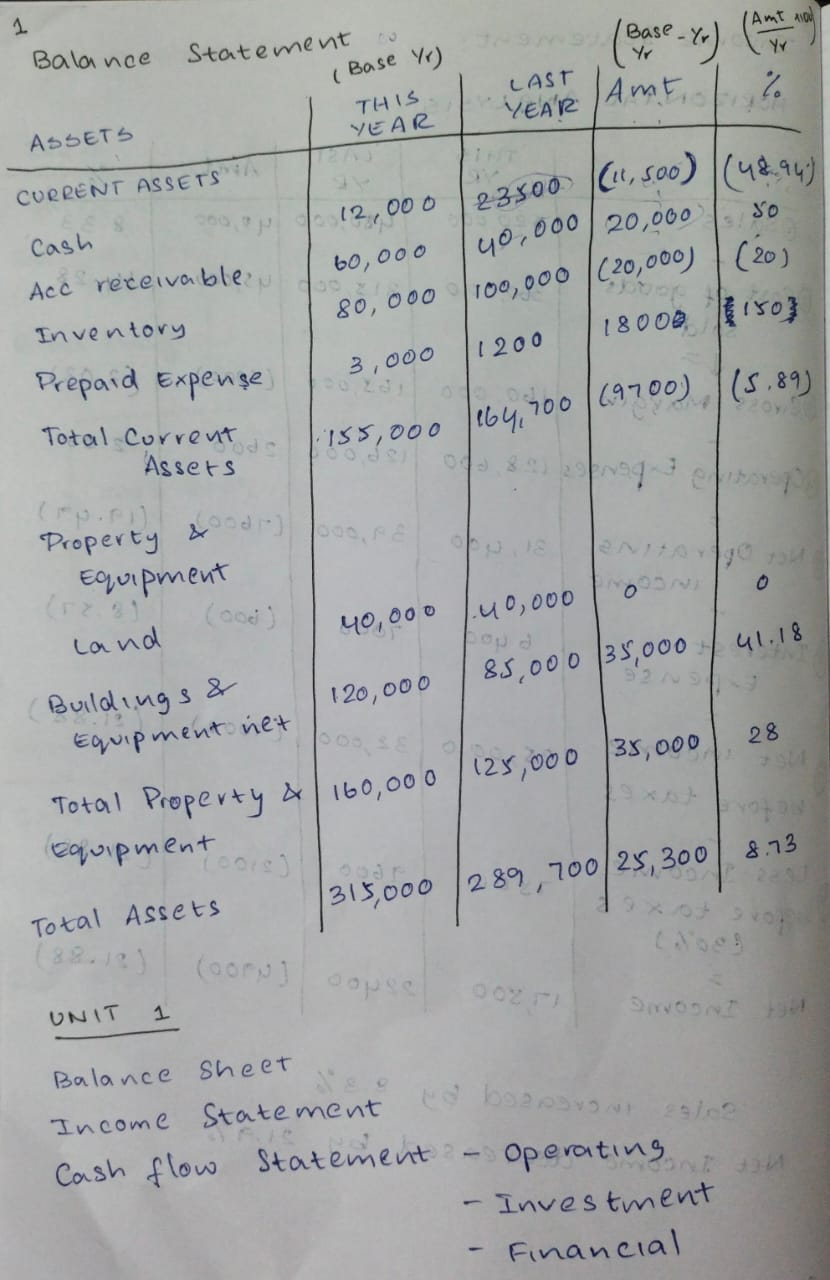 1
Balance Statement
(Base Yr) (Base Yr - Yr) (Amt x100 / Yr)
ASSETS THIS YEAR LAST YEAR Amt %
CURRENT ASSETS
Cash 12,000 23500 (11,500) (48.94)
Acc receivable 60,000 40,000 20,000 50
Inventory 80,000 100,000 (20,000) (20)
Prepaid Expense 3,000 1200 1800 150
Total Current Assets 155,000 164,700 (9700) (5.89)
Property &
Equipment
Land 40,000 40,000 0 0
Buildings & Equipment net 120,000 85,000 35,000 41.18
Total Property & Equipment 160,000 125,000 35,000 28
Total Assets 315,000 289,700 25,300 8.73
UNIT 1
Balance Sheet
Income Statement
Cash flow Statement - Operating
- Investment
- Financial